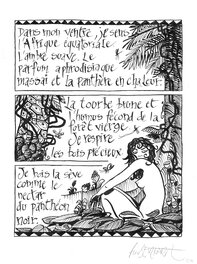 Dans mon ventre, je sens
l'Afrique équatoriale
L'ambre suave. Le
parfum aphrodisiaque
massaï et la panthère en chaleur.
la tourbe brune et
l'humus fécond de la
forêt vierge
Je respire
les bois précieux
Je bois la sève
comme le
nectar
du panthéon
noir.